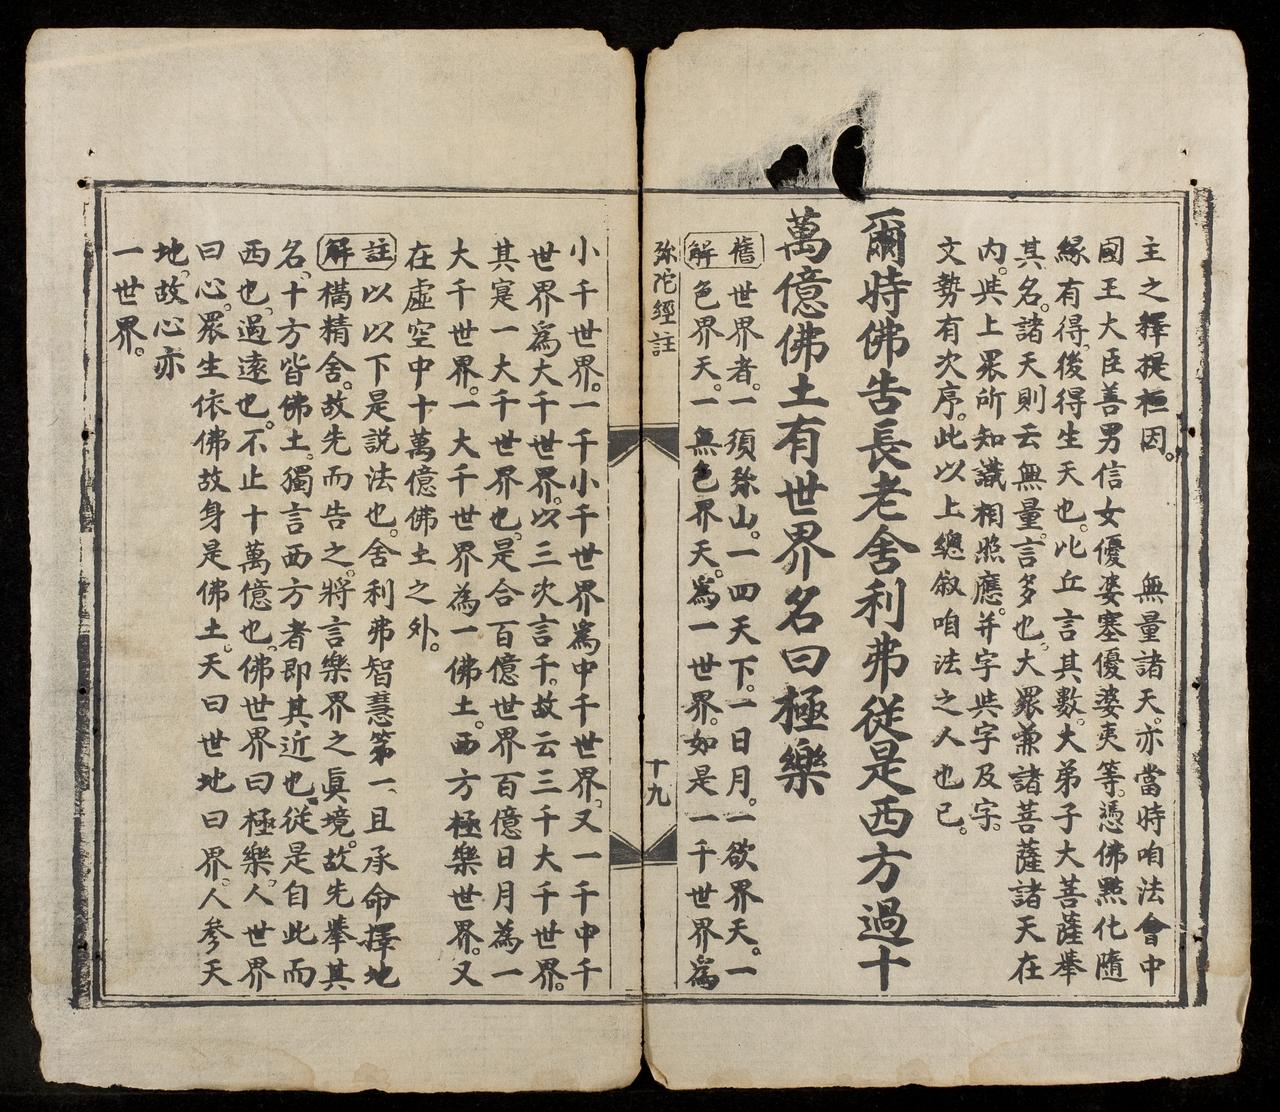 主之釋提桓因。　無量諸天。亦當時咱法會中
國王大臣善男信女優婆塞優婆夷等。憑佛點化隨
緣有得。後得生天也。比丘言其數。大弟子大菩薩舉
其名。諸天則云無量。言多也。大衆兼諸菩薩諸天在
內。與上衆所知識相照應。并字與字及字。
文勢有次序。此以上總叙咱法之人也已。
爾時佛告長老舍利弗從是西方過十
萬億佛土有世界名曰極樂
舊世界者。一須彌山。一四天下。一日月。一欲界天。一
解色界天。一無色界天。爲一世界。如是一千世界爲
弥陀經註
十九
小千世界。一千小千世界爲中千世界。又一千中千
世界爲大千世界。以三次言千。故云三千大千世界。
其寔一大千世界也。是合百億世界百億日月為一
大千世界。一大千世界為一佛土。西方極樂世界。又
在虛空中十萬億佛土之外。
註以以下是説法也。舍利弗智慧第一、且承命擇地
解搆精舍。故先而告之。將言樂界之眞境。故先舉其
名。十方皆佛土。獨言西方者即其近也。從是自此而
西也。過遠也。不止十萬億也。佛世界曰極樂。人世界
曰心。衆生依佛故身是佛土。天曰世地曰界。人参天
地。故心亦
一世界。